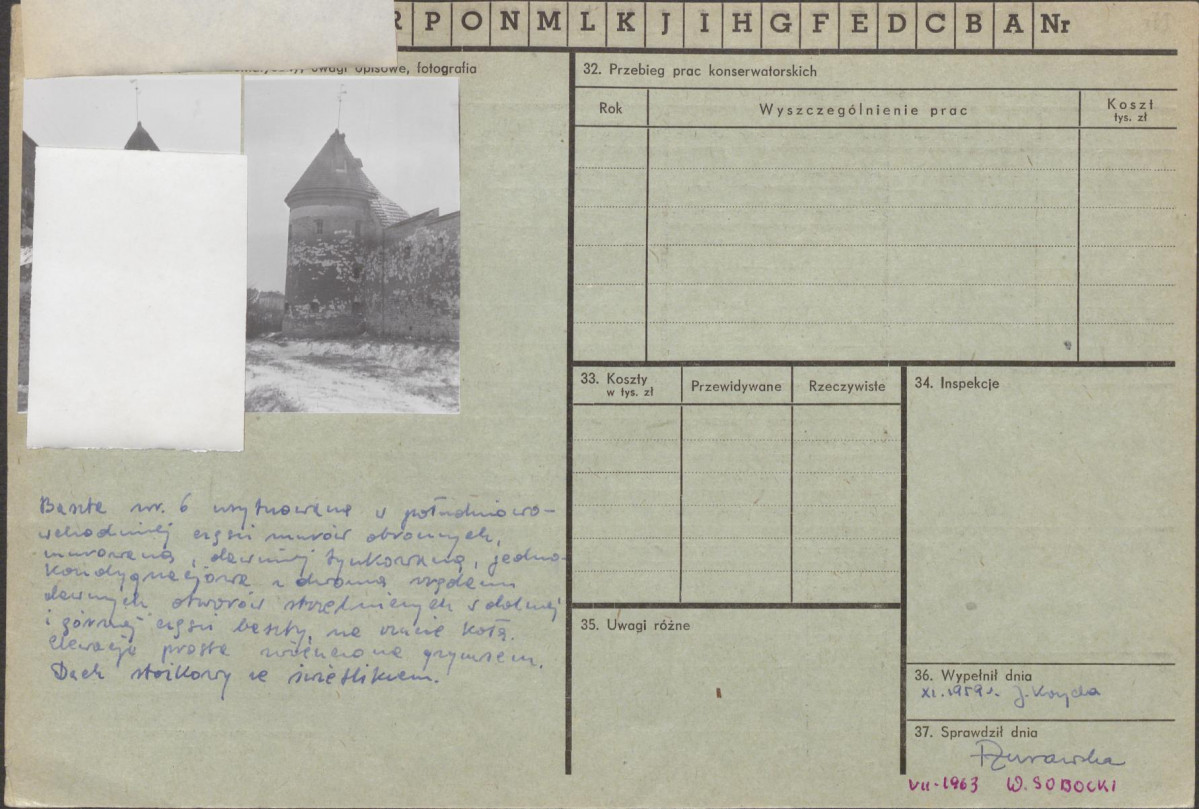 R P O N M L K J I H G F E D C B A Nr
uwagi opisowe, fotografia
32. Przebieg prac konserwatorskich
Rok Wyszczególnienie prac Koszt
tys. zł
33. Koszty
w tys. zł
Przewidywane Rzeczywiste
34. Inspekcje
Baszta nr. 6 usytuowana w południowo-
wschodniej części murów obronnych,
murowana, dawniej tynkowana, jedno-
kondygnacjowa z dwoma rzędami
dawnych otworów strzelniczych w dolnej
i górnej części baszty, na rzucie koła.
Elewacja prosta zwieńczona gzymsem.
Dach stożkowy ze świetlikiem.
35. Uwagi różne
36. Wypełnił dnia
XI. 1959 r. J.
37. Sprawdził dnia
Żurawska
VII-1963 W. SOBOCKI